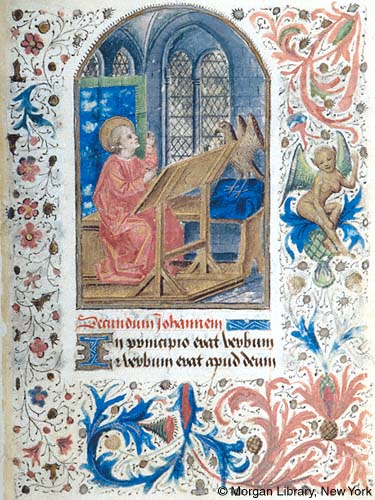 Secundum Johannem
In principio erat verbum
et verbum erat apud deum
© Morgan Library, New York